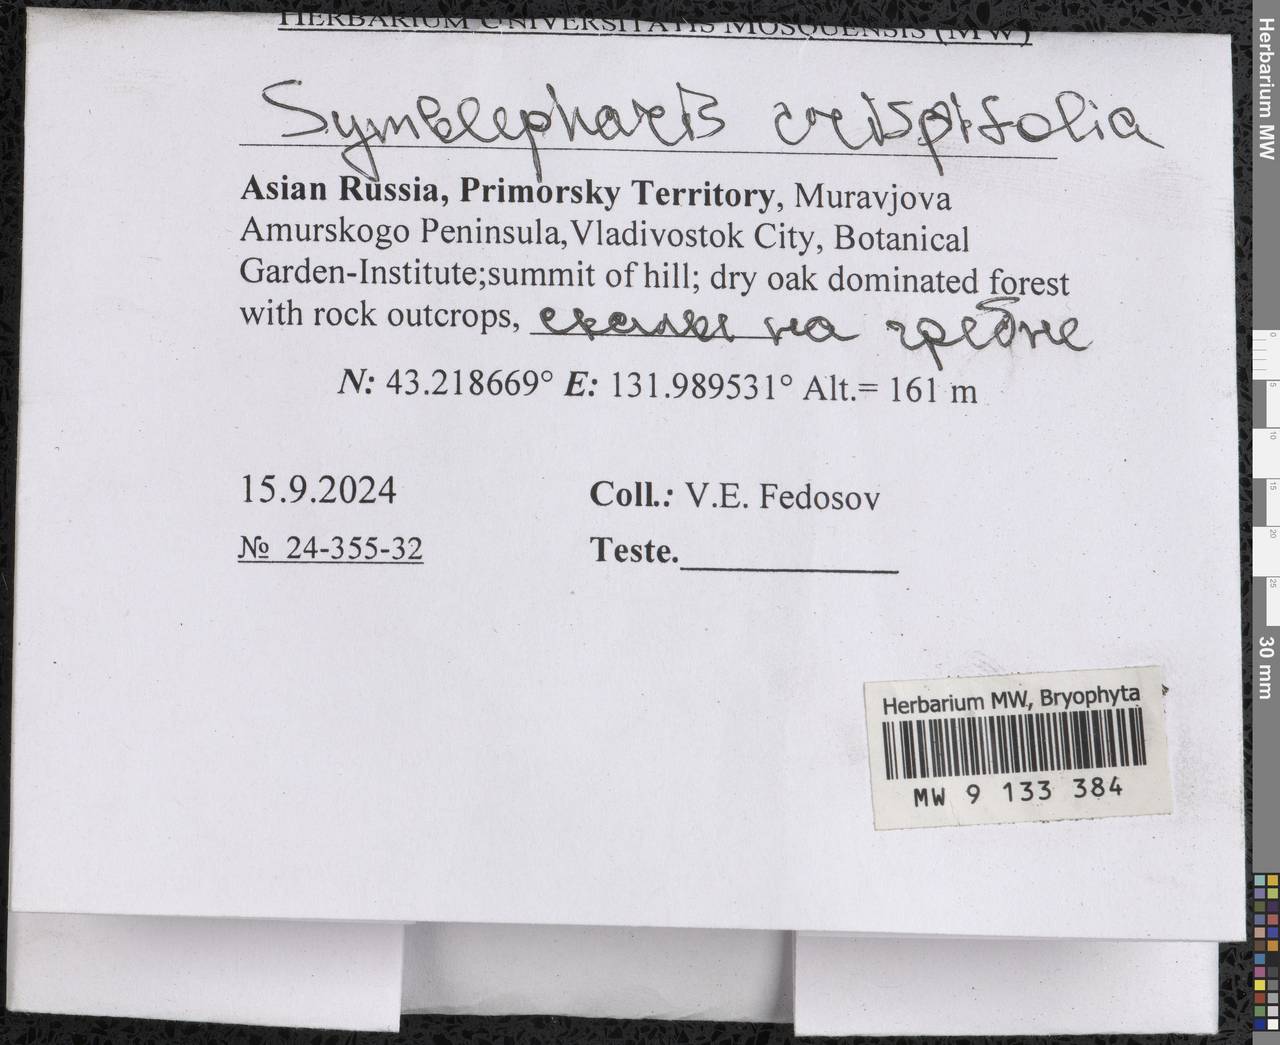 HERBARIUM UNIVERSITATIS MOSQUENSIS (MW)
Symblepharis crispifolia
Asian Russia, Primorsky Territory, Muravjova
Amurskogo Peninsula, Vladivostok City, Botanical
Garden-Institute;summit of hill; dry oak dominated forest
with rock outcrops, скалы на гребне
N: 43.218669° E: 131.989531° Alt.= 161 m
15.9.2024
Coll.: V.E. Fedosov
№ 24-355-32
Teste.
Herbarium MW, Bryophyta
MW 9 133 384
Herbarium MW
0
5
10
15
20
25
30 mm